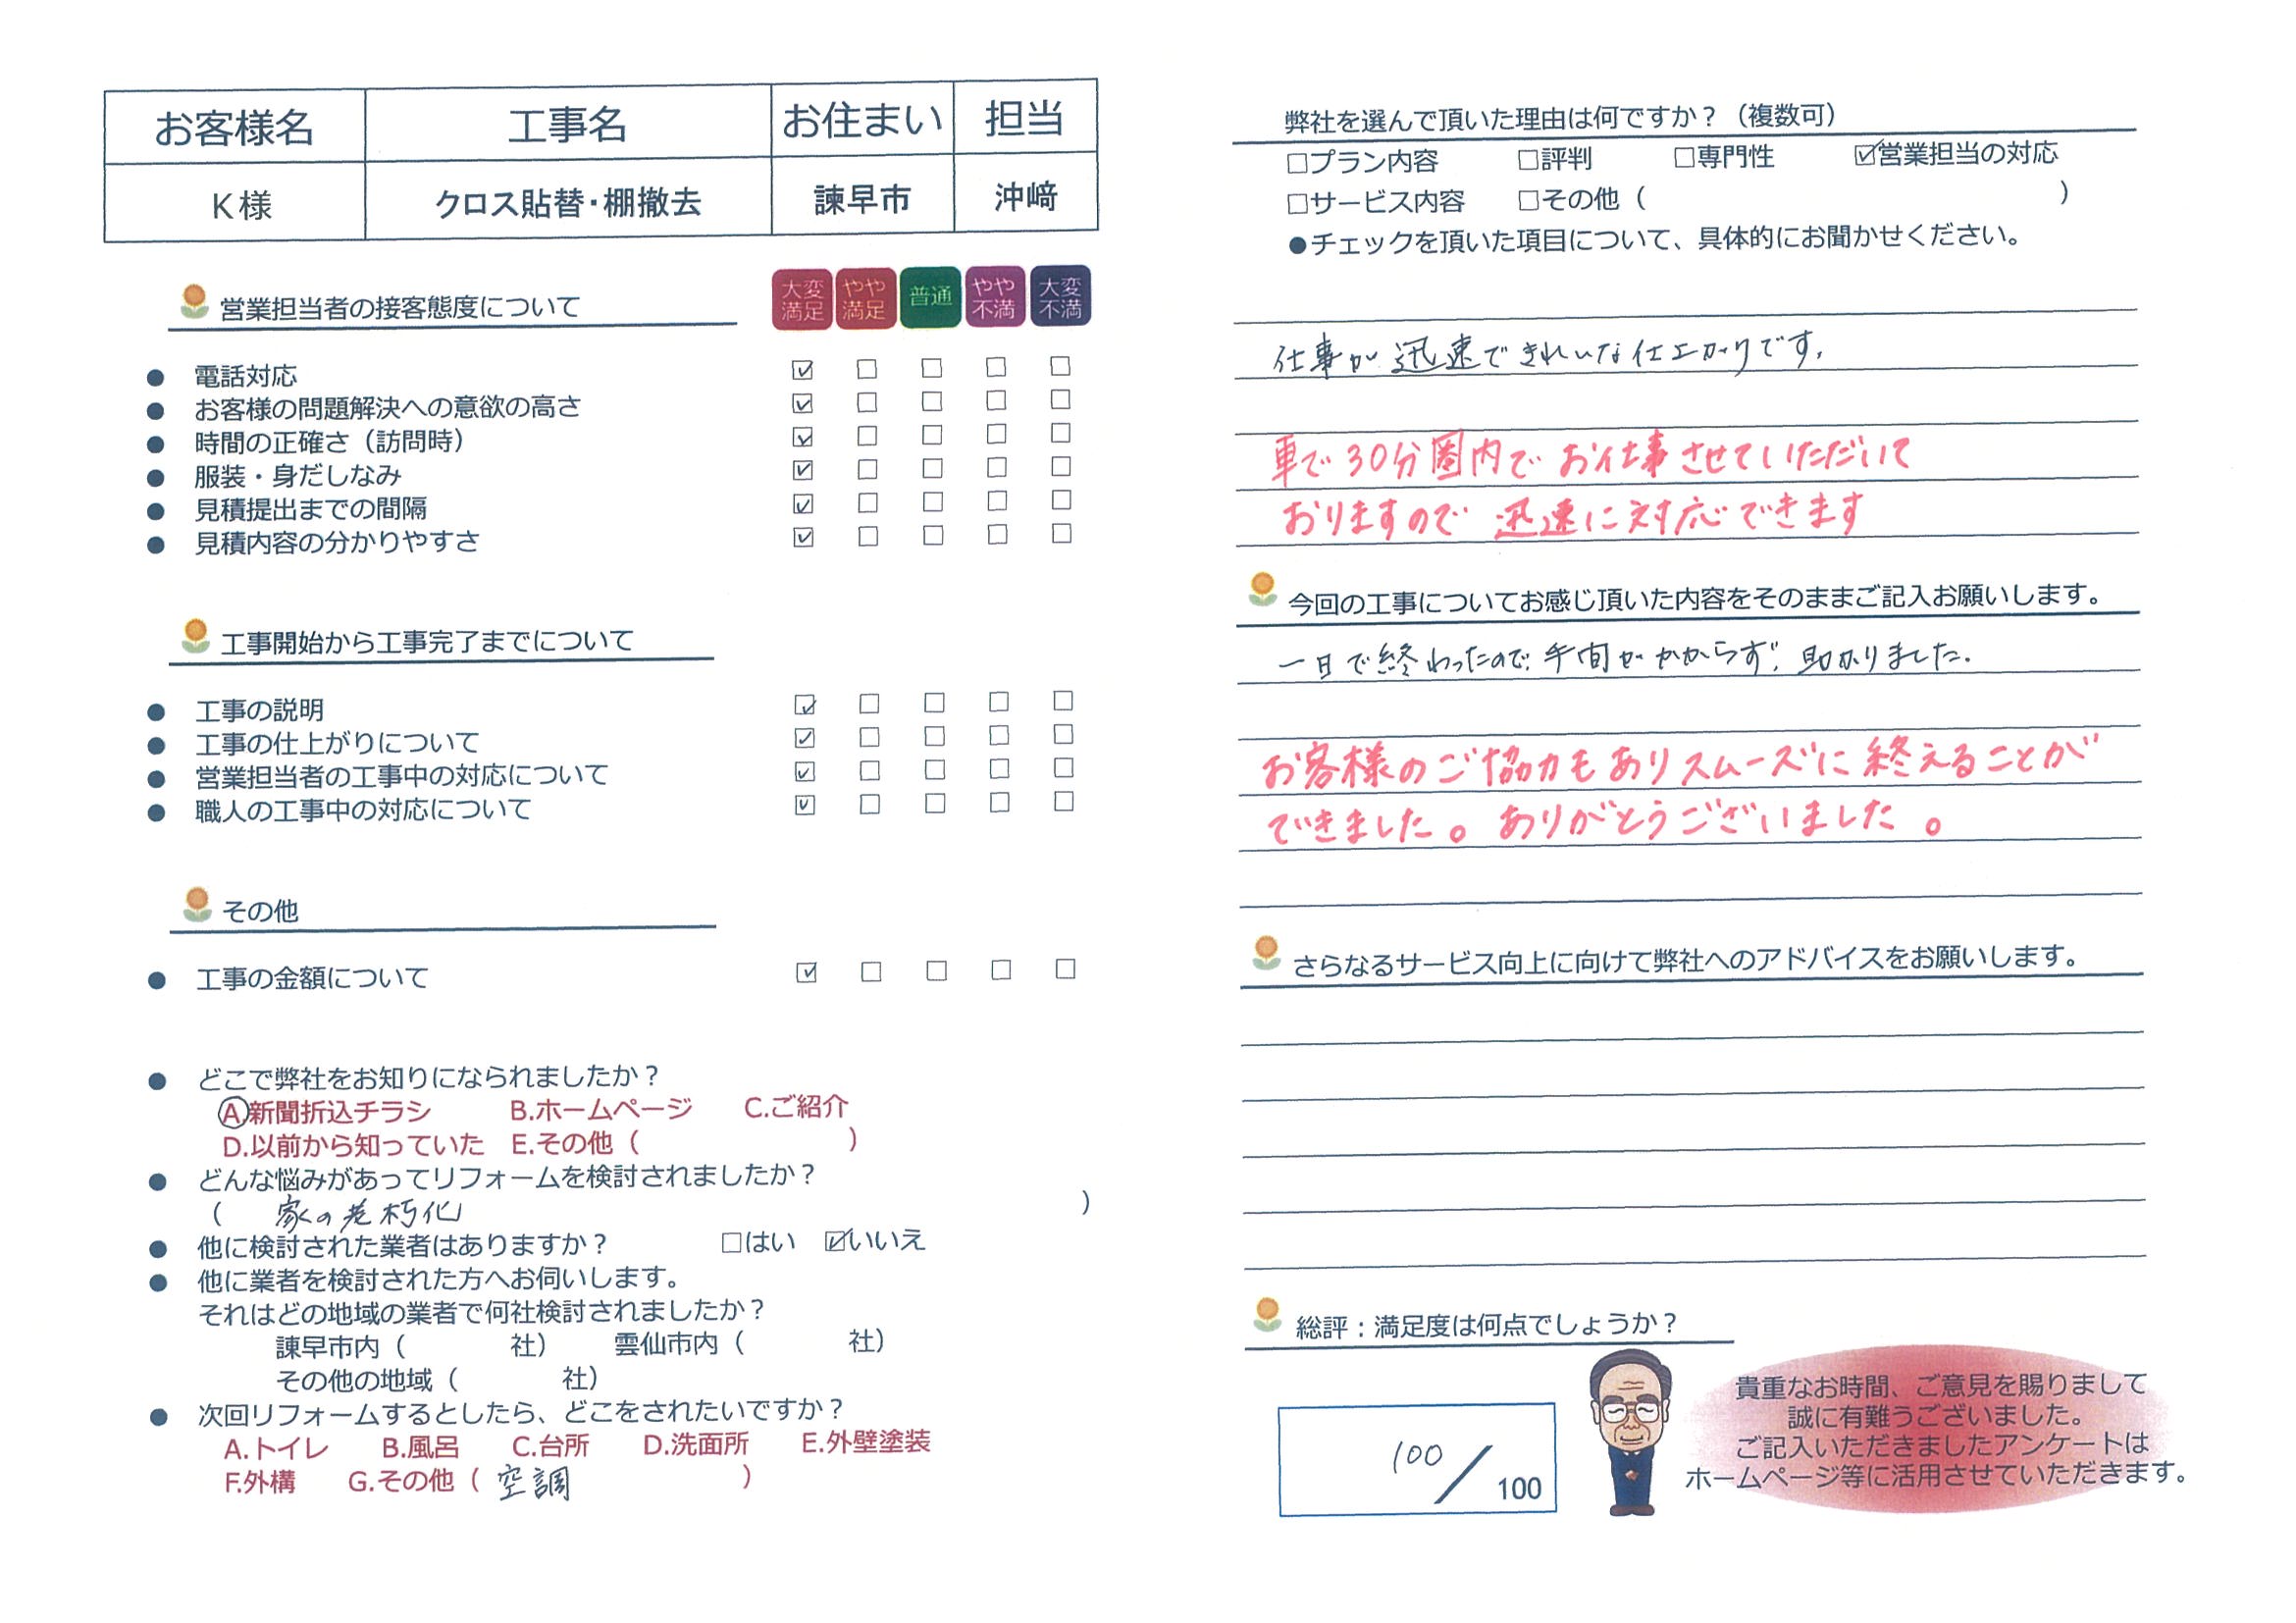 お客様名 工事名 お住まい 担当
K様 クロス貼替・棚撤去 諫早市 沖﨑
営業担当者の接客態度について
大変満足 やや満足 普通 やや不満 大変不満
● 電話対応 ☑ □ □ □ □
● お客様の問題解決への意欲の高さ ☑ □ □ □ □
● 時間の正確さ（訪問時） ☑ □ □ □ □
● 服装・身だしなみ ☑ □ □ □ □
● 見積提出までの間隔 ☑ □ □ □ □
● 見積内容の分かりやすさ ☑ □ □ □ □
工事開始から工事完了までについて
● 工事の説明 ☑ □ □ □ □
● 工事の仕上がりについて ☑ □ □ □ □
● 営業担当者の工事中の対応について ☑ □ □ □ □
● 職人の工事中の対応について ☑ □ □ □ □
その他
● 工事の金額について ☑ □ □ □ □
● どこで弊社をお知りになられましたか？
A.新聞折込チラシ B.ホームページ C.ご紹介
D.以前から知っていた E.その他（ ）
● どんな悩みがあってリフォームを検討されましたか？
（ 家の老朽化 ）
● 他に検討された業者はありますか？ □はい ☑いいえ
● 他に業者を検討された方へお伺いします。
それはどの地域の業者で何社検討されましたか？
諫早市内（ 社） 雲仙市内（ 社）
その他の地域（ 社）
● 次回リフォームするとしたら、どこをされたいですか？
A.トイレ B.風呂 C.台所 D.洗面所 E.外壁塗装
F.外構 G.その他（ 空調 ）
弊社を選んで頂いた理由は何ですか？（複数可）
□プラン内容 □評判 □専門性 ☑営業担当の対応
□サービス内容 □その他（ ）
●チェックを頂いた項目について、具体的にお聞かせください。
仕事が迅速できれいな仕上がりです。
車で30分圏内でお仕事させていただいて
おりますので迅速に対応できます
今回の工事についてお感じ頂いた内容をそのままご記入お願いします。
一日で終わったので、手間がかからず、助かりました。
お客様のご協力もありスムーズに終えることが
できました。ありがとうございました。
さらなるサービス向上に向けて弊社へのアドバイスをお願いします。
総評：満足度は何点でしょうか？
100／100
貴重なお時間、ご意見を賜りまして
誠に有難うございました。
ご記入いただきましたアンケートは
ホームページ等に活用させていただきます。